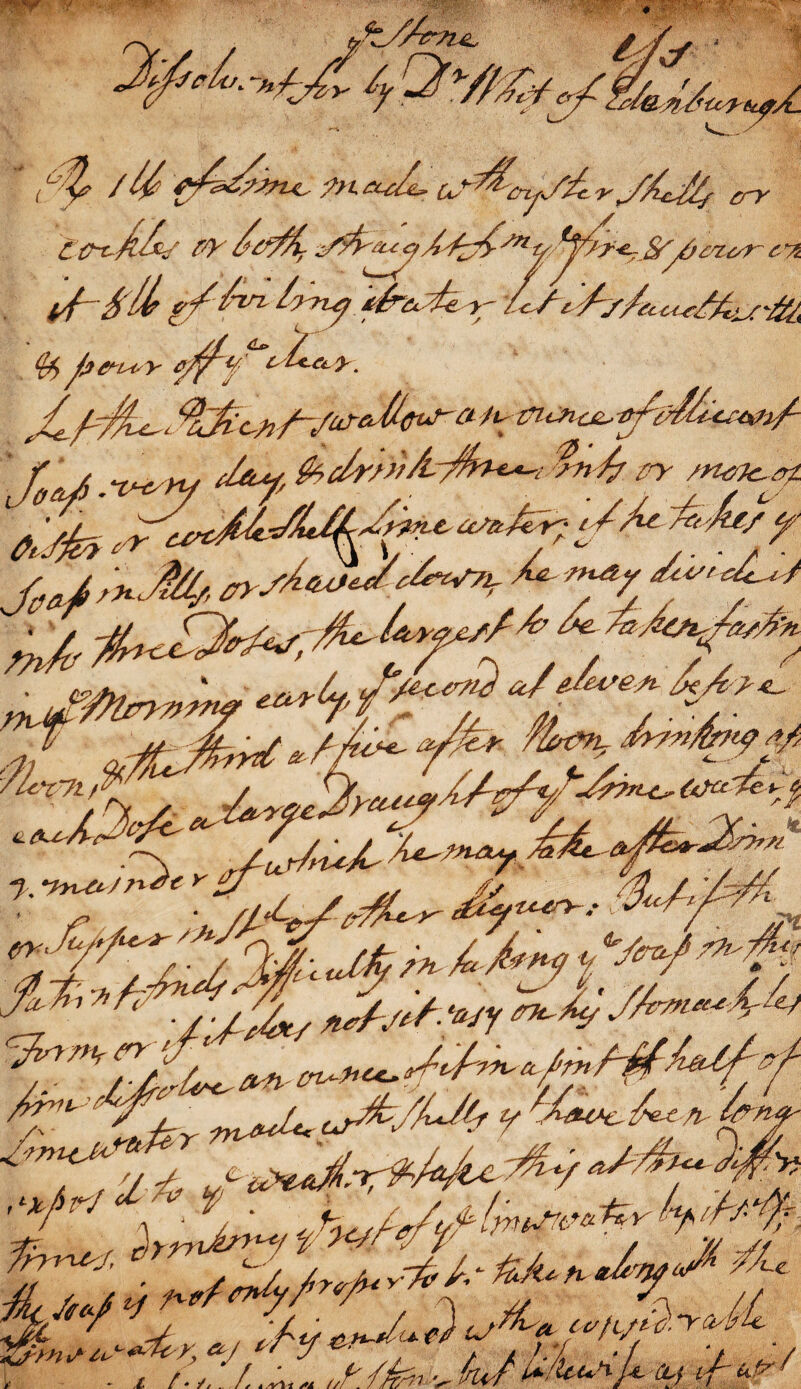 yᵉ Stone
Dissolvent for by Dʳ Whit of Edenburagh
℞ 1 lb of Lime made wᵗʰ oyster shells or
cockles or both, straight frᵐ yᵉ fire, & pour on
it 8 lb of boiling water, let it stand to settle
& pour off yᵉ clear.
Let the Patient swallow an ounce of Allicant
Soap every day, & drink three Pints or more of
Oister or cockle shell Lime water; if he takes yᵉ
Soap in Pills, or shaved down, he may divide it
into three Doses, the largest to be taken fasting
in yᵉ Morning early, yᵉ second at eleven before
Noon, & the third at five after Noon, drinking aft
each Dose a large Draught of yᵉ Lime water, y
remainder of which he may take after Dinn
or Supper inStᵈ of other Liquor: But if th
Patient finds Difficulty in taking yᵉ soap in this
Form, or if it does not sit easy on his Stomach, let
him dissolve an ounce of it in a pint & half of
Lime water made wᵗʰ shells yᵗ have been long
expos'd to yᵉ weather, & take this at three differ
times, drinking yᵉ rest of yᵉ lime water by it self;
the soap is not only proper to be taken along wᵗʰ the
Lime water, as it is endued wᵗʰ a considerable
yᵉ Stone but likewise as it will